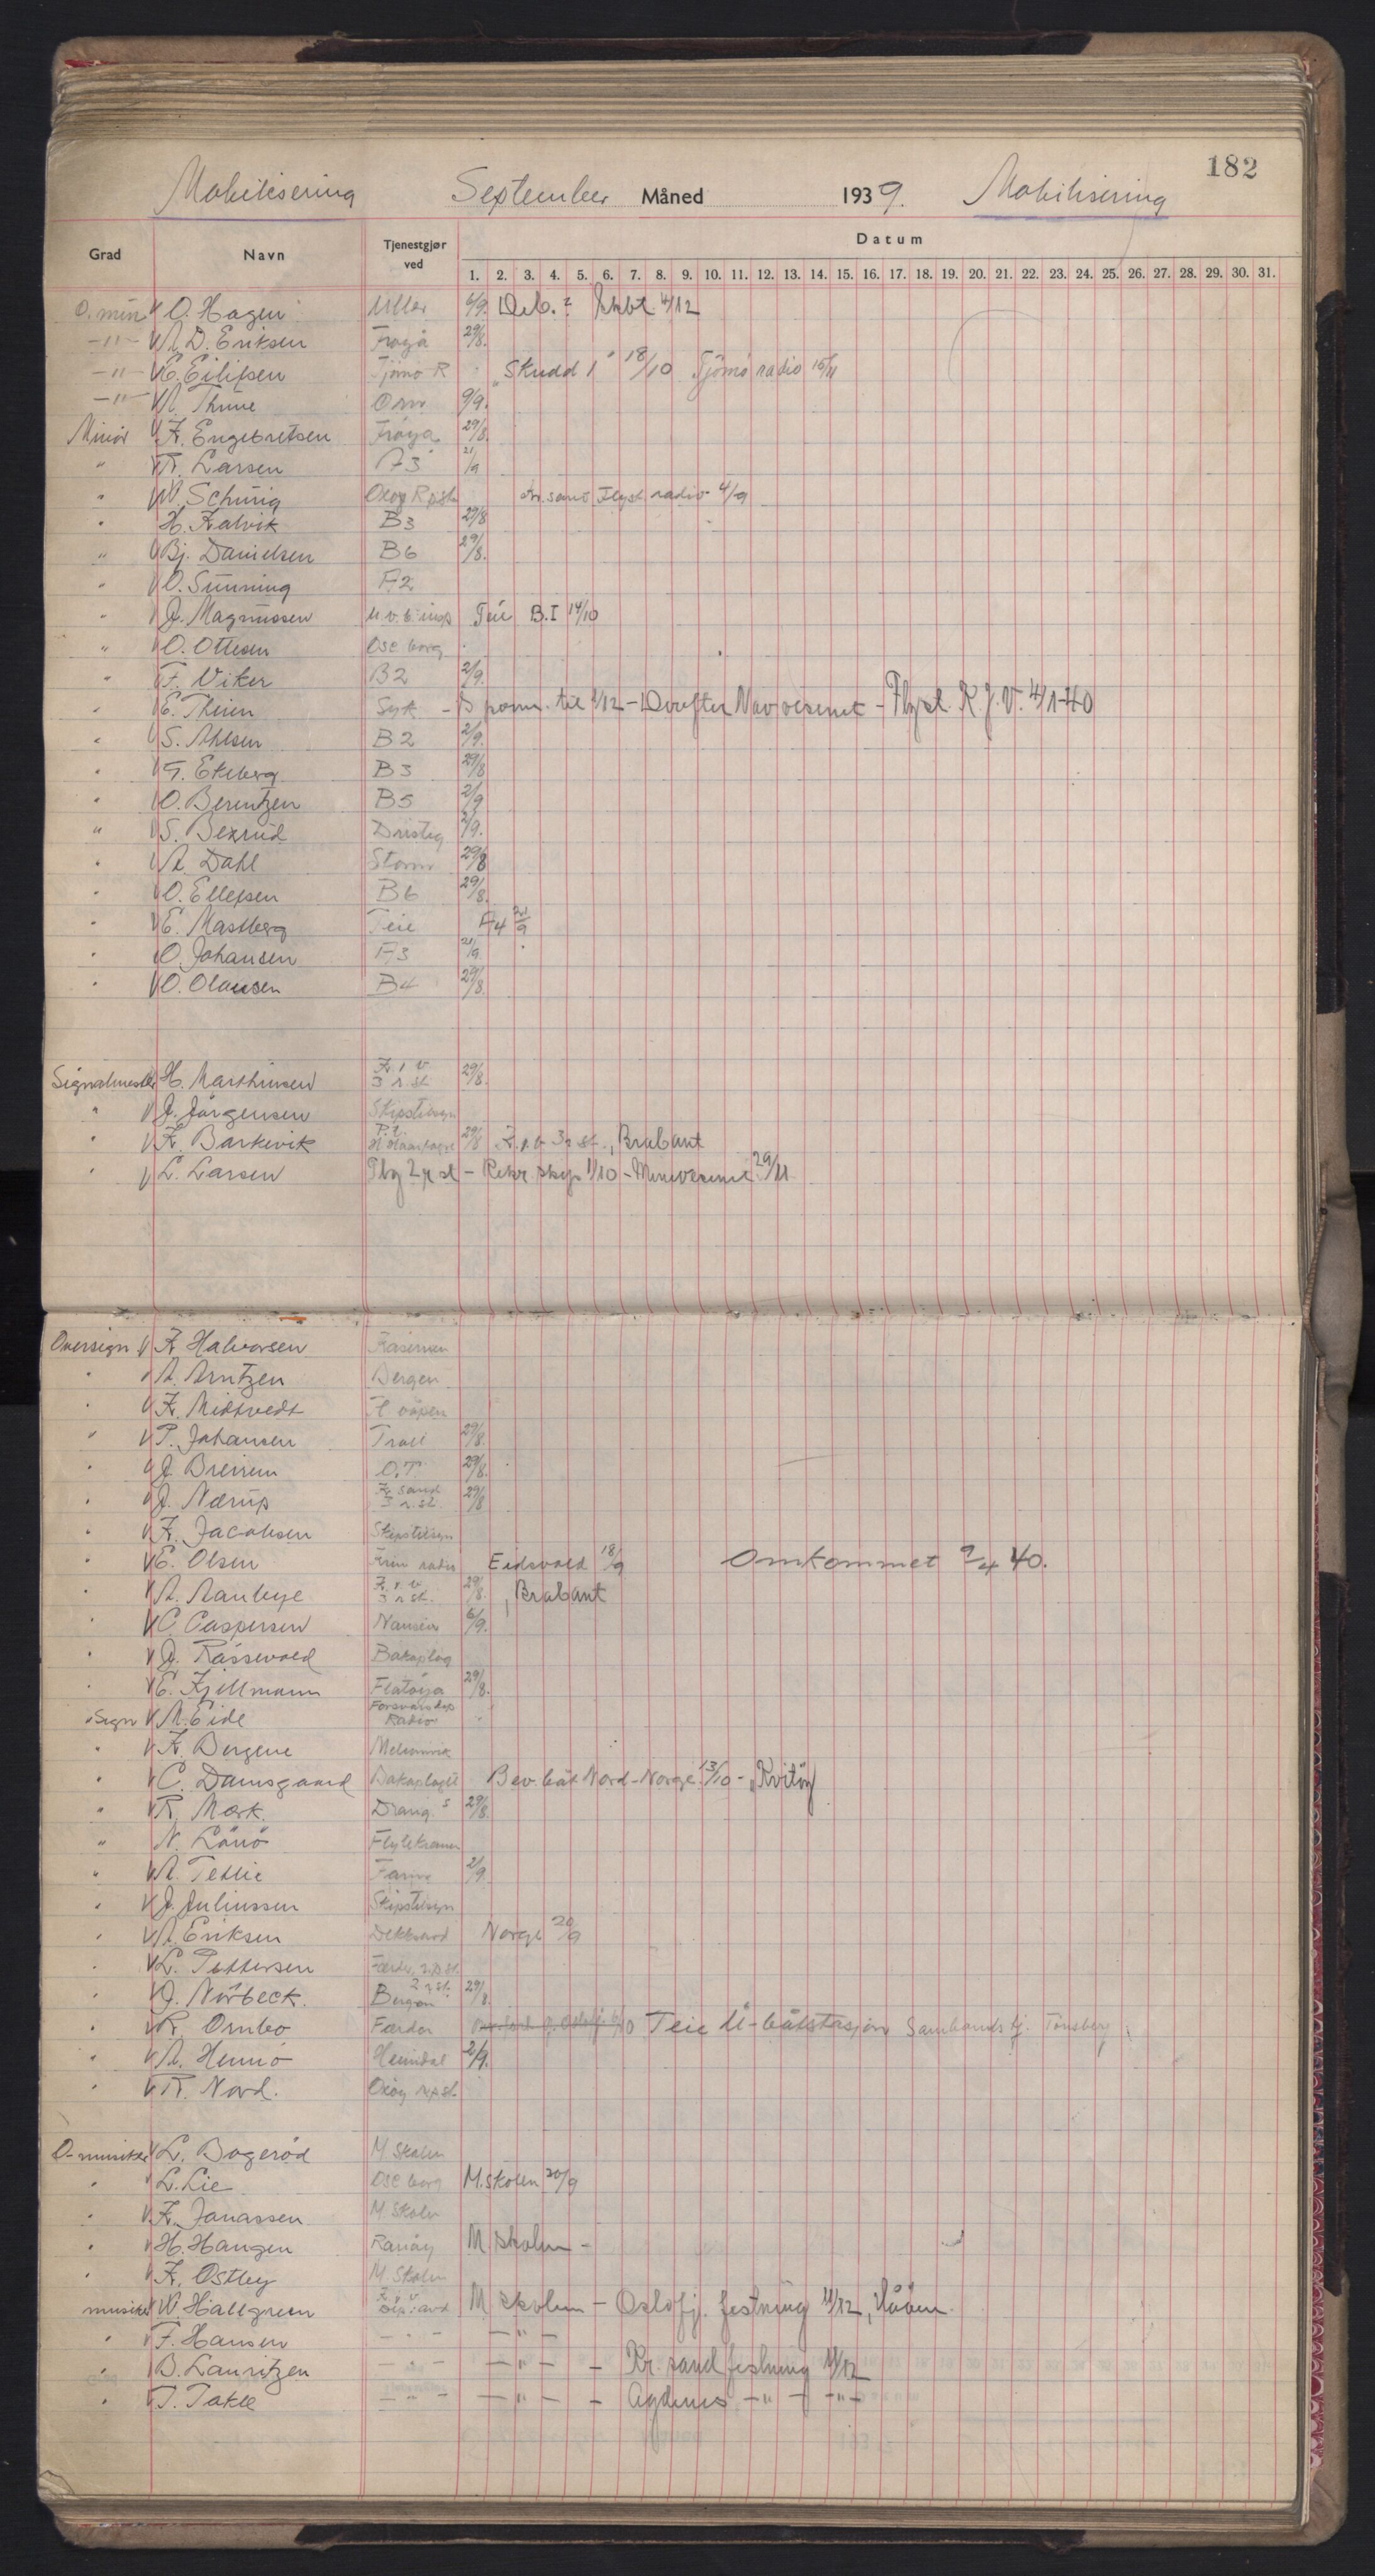 182
Mobilisering September Måned 1939. Mobilisering
Grad Navn Tjenestgjør ved Datum
1. 2. 3. 4. 5. 6. 7. 8. 9. 10. 11. 12. 13. 14. 15. 16. 17. 18. 19. 20. 21. 22. 23. 24. 25. 26. 27. 28. 29. 30. 31.
O. min O. Hagen Uller 6/9. Deb. 2 4/12
-"- A. D. Eriksen Frøya 29/8.
-"- E. Eilifsen Tjømø R "Skudd 1" 18/10 Tjømø radio 15/11
-"- A. Thune Orn 9/9.
Minør K. Engebretsen Frøya 29/8.
" R. Larsen A3 21/9
" W. Schürig Flyst. radio 4/9
" H. Kalvik B3 29/8
" Bj. Danielsen B6 29/8.
" O. Sünning A2
" J. Magnussen U.v.b. insp Teie B.I 14/10
" O. Ottesen Ose borg
" F. Viker B2 2/9.
" E. Theien Syk - perm. til 1/12 - Derefter Navvesenet - Flyst. K.J.V. 4/1-40
" S. Ahlsen B2 2/9.
" G. Ekeberg B3 29/8
" O. Berntzen B5 2/9
" S. Bexrud Dristig 2/9.
" A. Dahl Storm 29/8
" O. Ellefsen B6 29/8.
" E. Mastberg Teie A4 21/9
" O. Johansen A3 21/9
" O. Olaussen B4 29/8.
Signalmester H. Marthinsen K.j.v. 3 r.st. 29/8.
" J. Jørgensen Skipstilsyn
" K. Barkevik 29/8 K.j.v. 3 r. st., Brabant
" L. Larsen 2 r st - Rekr. skp 1/10 - Minevesenet 29/11
Oversign K. Halvorsen Kasernen
" A. Arntzen Bergen
" K. Midtvedt H. våpen
" P. Johansen Troll 29/8.
" J. Breirem O.T. 29/8.
" J. Nærup Kr sand 3 r. st. 29/8
" K. Jacobsen Skipstilsyn
" E. Olsen radio Eidsvold 18/9 Omkommet 9/4 40.
" A. Aanbye K.j.v. 3 r st. 29/8. , Brabant
" C. Caspersen Nansen 6/9.
" J. Rassevold Bakaplag
" E. Kjellmann Flatøya 29/8.
" Sign A. Eide Forsvarsdep Radio
" K. Bergene Melsomvik
" C. Damsgaard Bakaplaget Bev. båt Nord-Norge 13/10 - "Kvitøy"
" R. Mørk Draug. s 29/8.
" N. Lönö
" A. Tetlie Farm 2/9.
" J. Juliussen Skipstilsyn
" A. Eriksen Norge 20/9
" L. Pettersen Færder r.p.st.
" J. Nörbeck. Bergen 2 r.st. 29/8.
" R. Ornbo Færder /10 Teie U-båtstasjon Sambandstj. Tønsberg
" A. Hennö Heimdal 2/9.
" R. Nord. Oxøy r.p.st.
O-musiker L. Bøgerød M. Skolen
" L. Lie Ose borg M. skolen 20/9
" K. Jonassen M. Skolen
" H. Haugen Rauøy M. skolen -
" K. Østby M. Skolen
musiker W. Hallgreen K.j.v. dep. avd M. skolen - Oslofj. festning 11/12, Håøen.
" F. Hansen - " - - " -
" B. Lauritzen - " - - " - - Kr. sand festning 11/12
" T. Takle - " - - " - - Agdenes - " - - " -